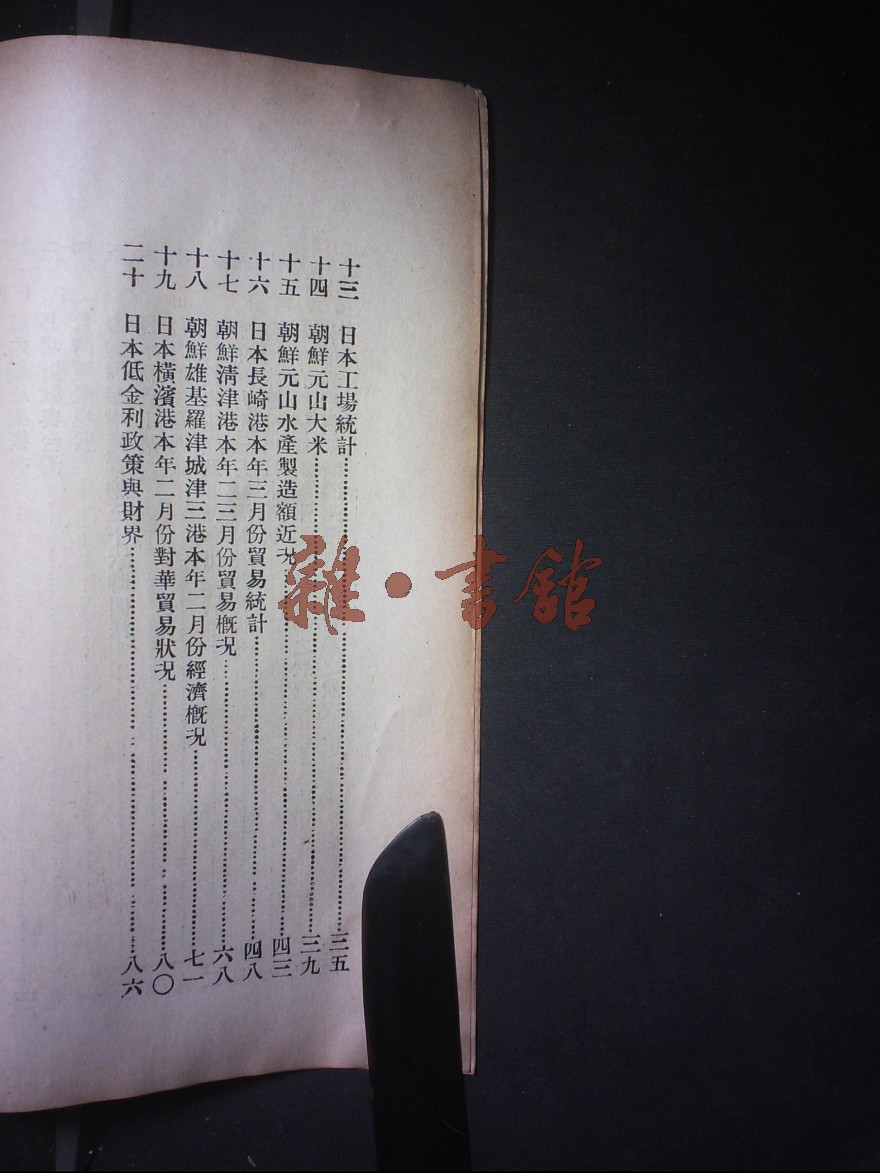 十三 日本工場統計………三五
十四 朝鮮元山大米………三九
十五 朝鮮元山水產製造額近况………四三
十六 日本長崎港本年三月份貿易統計………四八
十七 朝鮮淸津港本年二三月份貿易概况………六八
十八 朝鮮雄基羅津城津三港本年二月份經濟概况………七一
十九 日本橫濱港本年二月份對華貿易狀况………八〇
二十 日本低金利政策與財界………八六
雜·書館